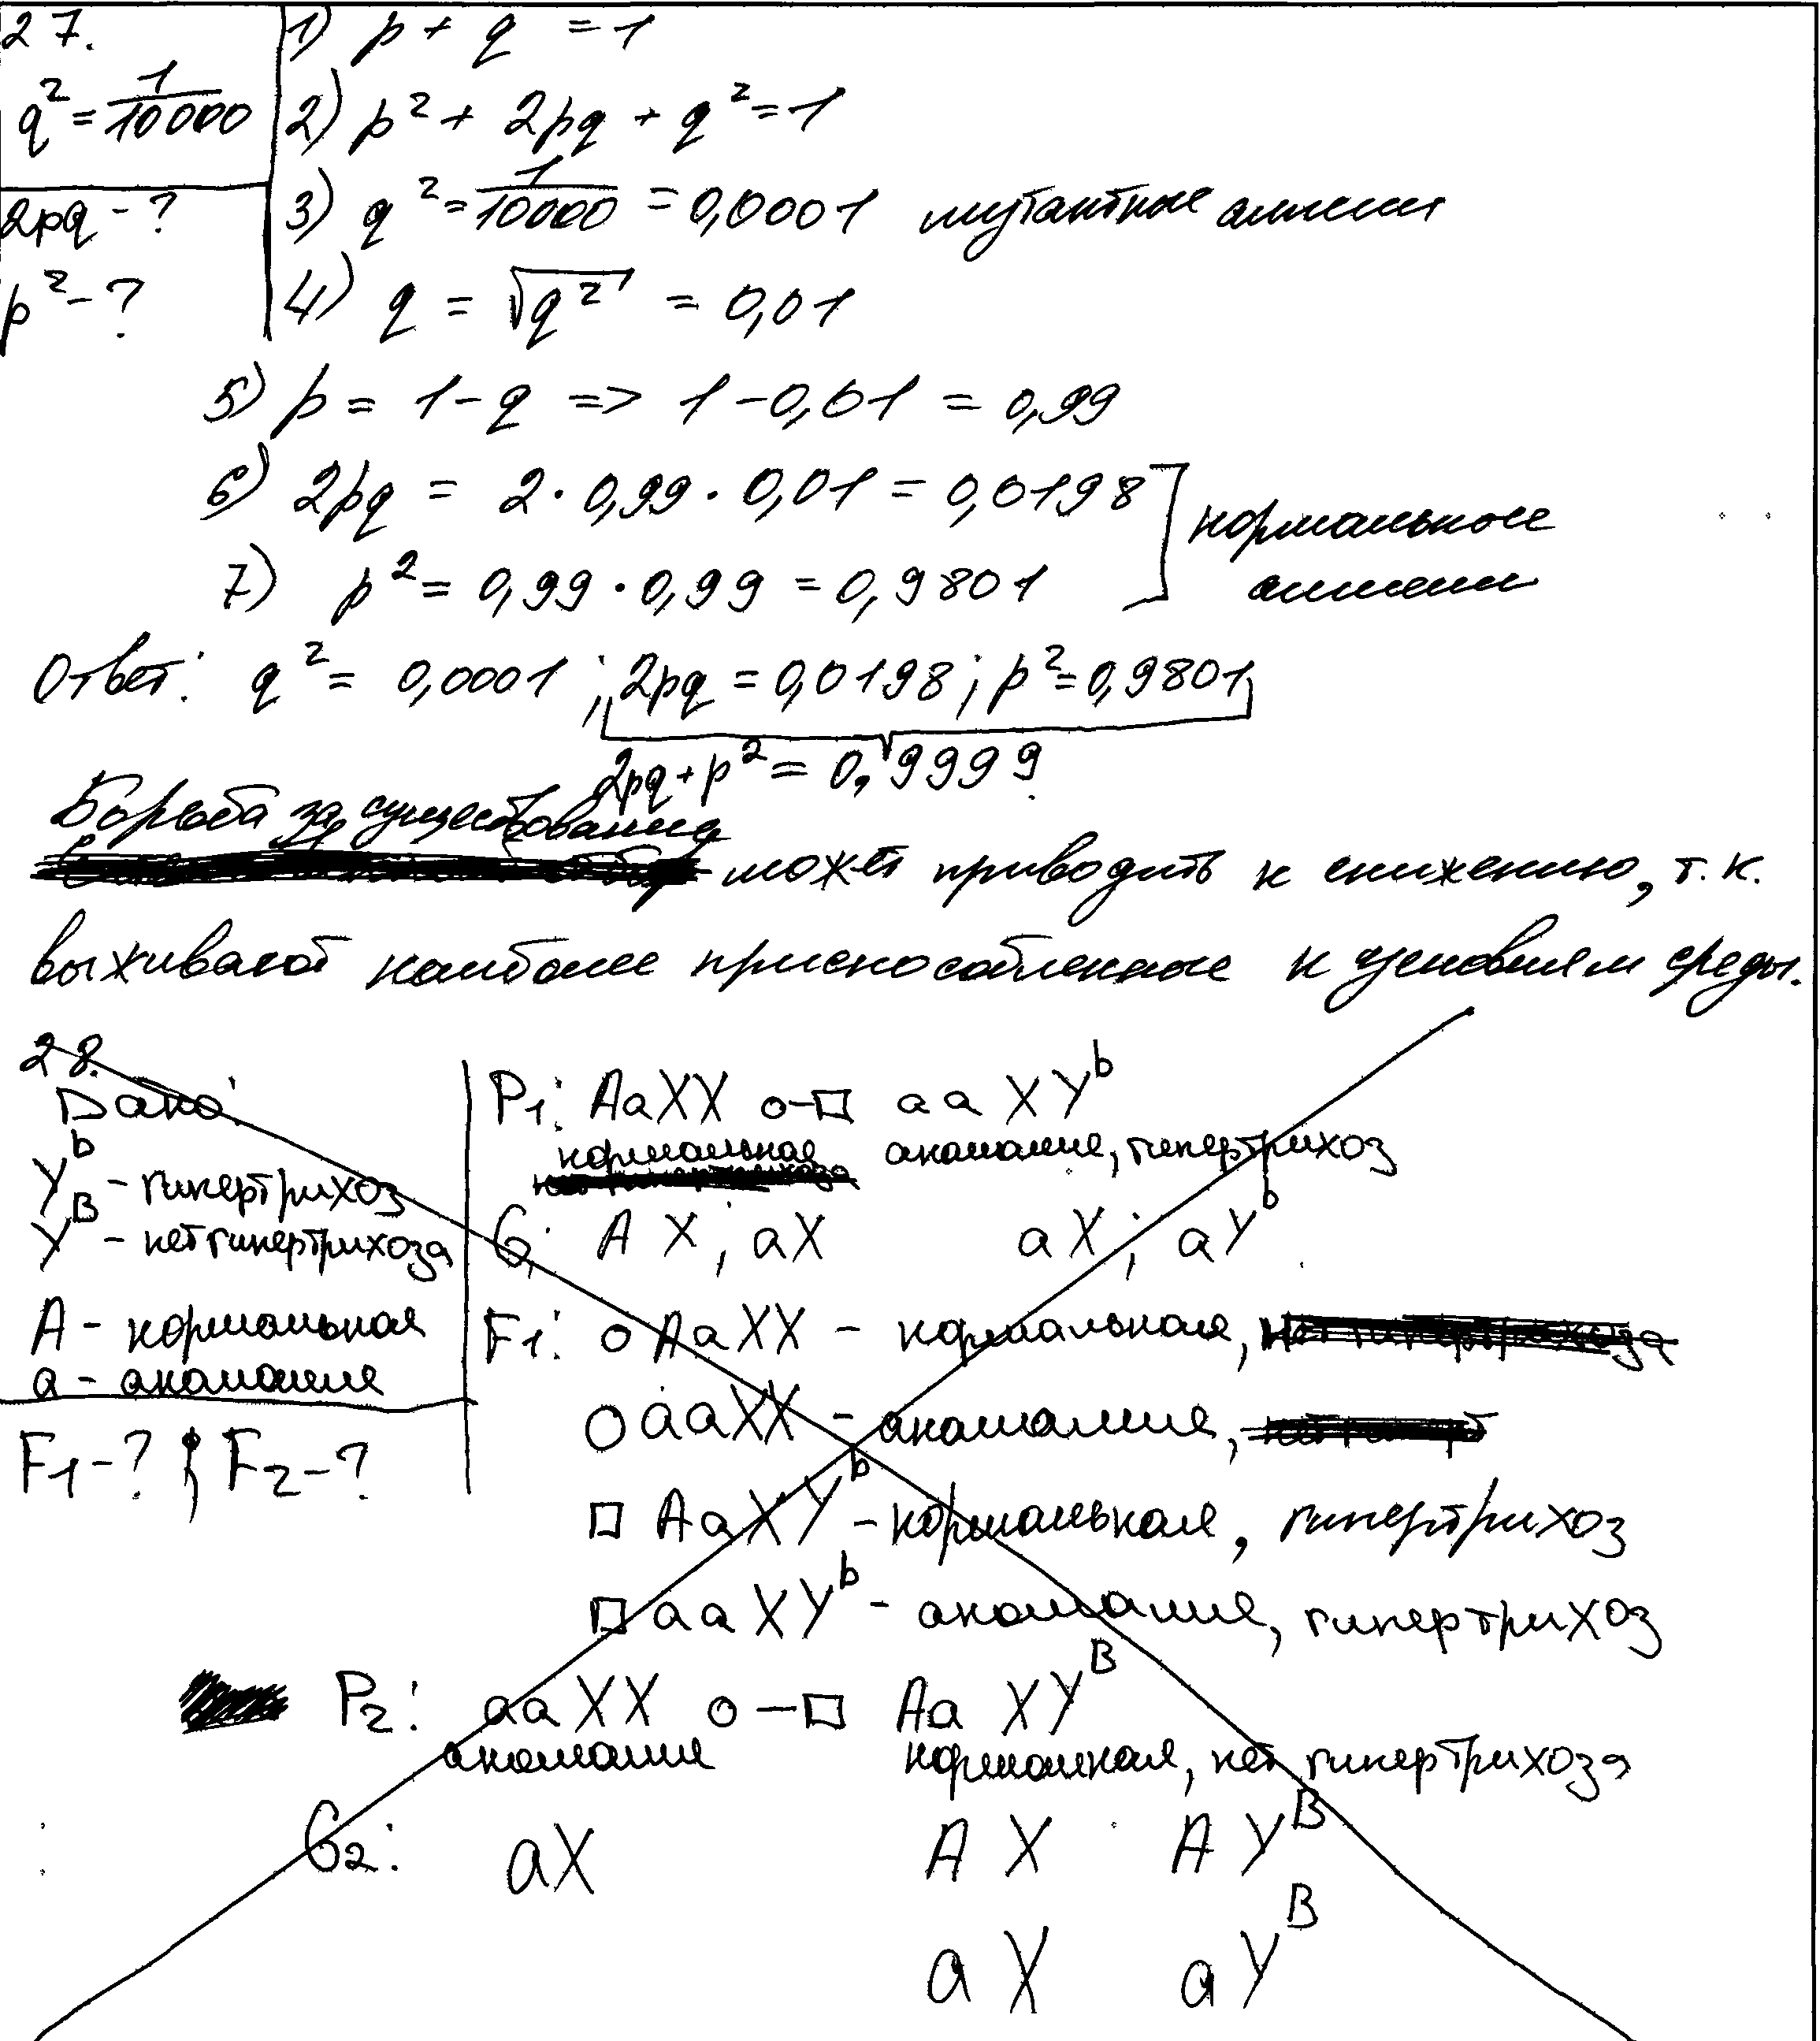 27.
q² = 1/10000
2pq - ?
p² - ?
1) p + q = 1
2) p² + 2pq + q² = 1
3) q² = 1/10000 = 0,0001 мутантные аллели
4) q = √q² = 0,01
5) p = 1 - q => 1 - 0,01 = 0,99
6) 2pq = 2 · 0,99 · 0,01 = 0,0198
нормальные
7) p² = 0,99 · 0,99 = 0,9801
аллели
Ответ: q² = 0,0001 ; 2pq = 0,0198 ; p² = 0,9801
2pq + p² = 0,9999
Борьба за существование
может приводить к снижению, т.к.
выживают наиболее приспособленные к условиям среды.
28.
Дано:
Yᵇ - гипертрихоз
Yᴮ - нет гипертрихоза
A - нормальная
a - анómалия
F1 - ? ; F2 - ?
P1: AaXX ○-□ aaXYᵇ
нормальная
нет гипертрихоза
G: AX ; aX aX ; aYᵇ
F1: ○ AaXX - нормальная, нет гипертрихоза
○ aaXX -
□ AaXYᵇ - нормальная, гипертрихоз
□ aaXYᵇ -
P2: aaXX ○-□ AaXYᴮ
нормальная, нет гипертрихоза
G2: aX AX AYᴮ
aX aYᴮ